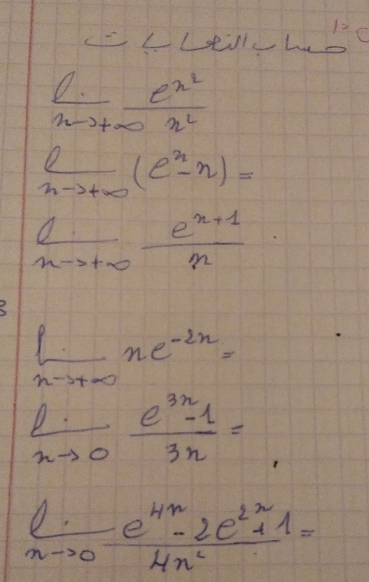 حساب النهايات
lim x→+∞ e^{x^2}/x^2
lim x→+∞ (e^x - x) =
lim x→+∞ e^{x+1}/x
lim x→+∞ xe^{-2x} =
lim x→0 e^{3x}-1/3x =
lim x→0 e^{4x} - 2e^{2x} + 1/4x^2 =